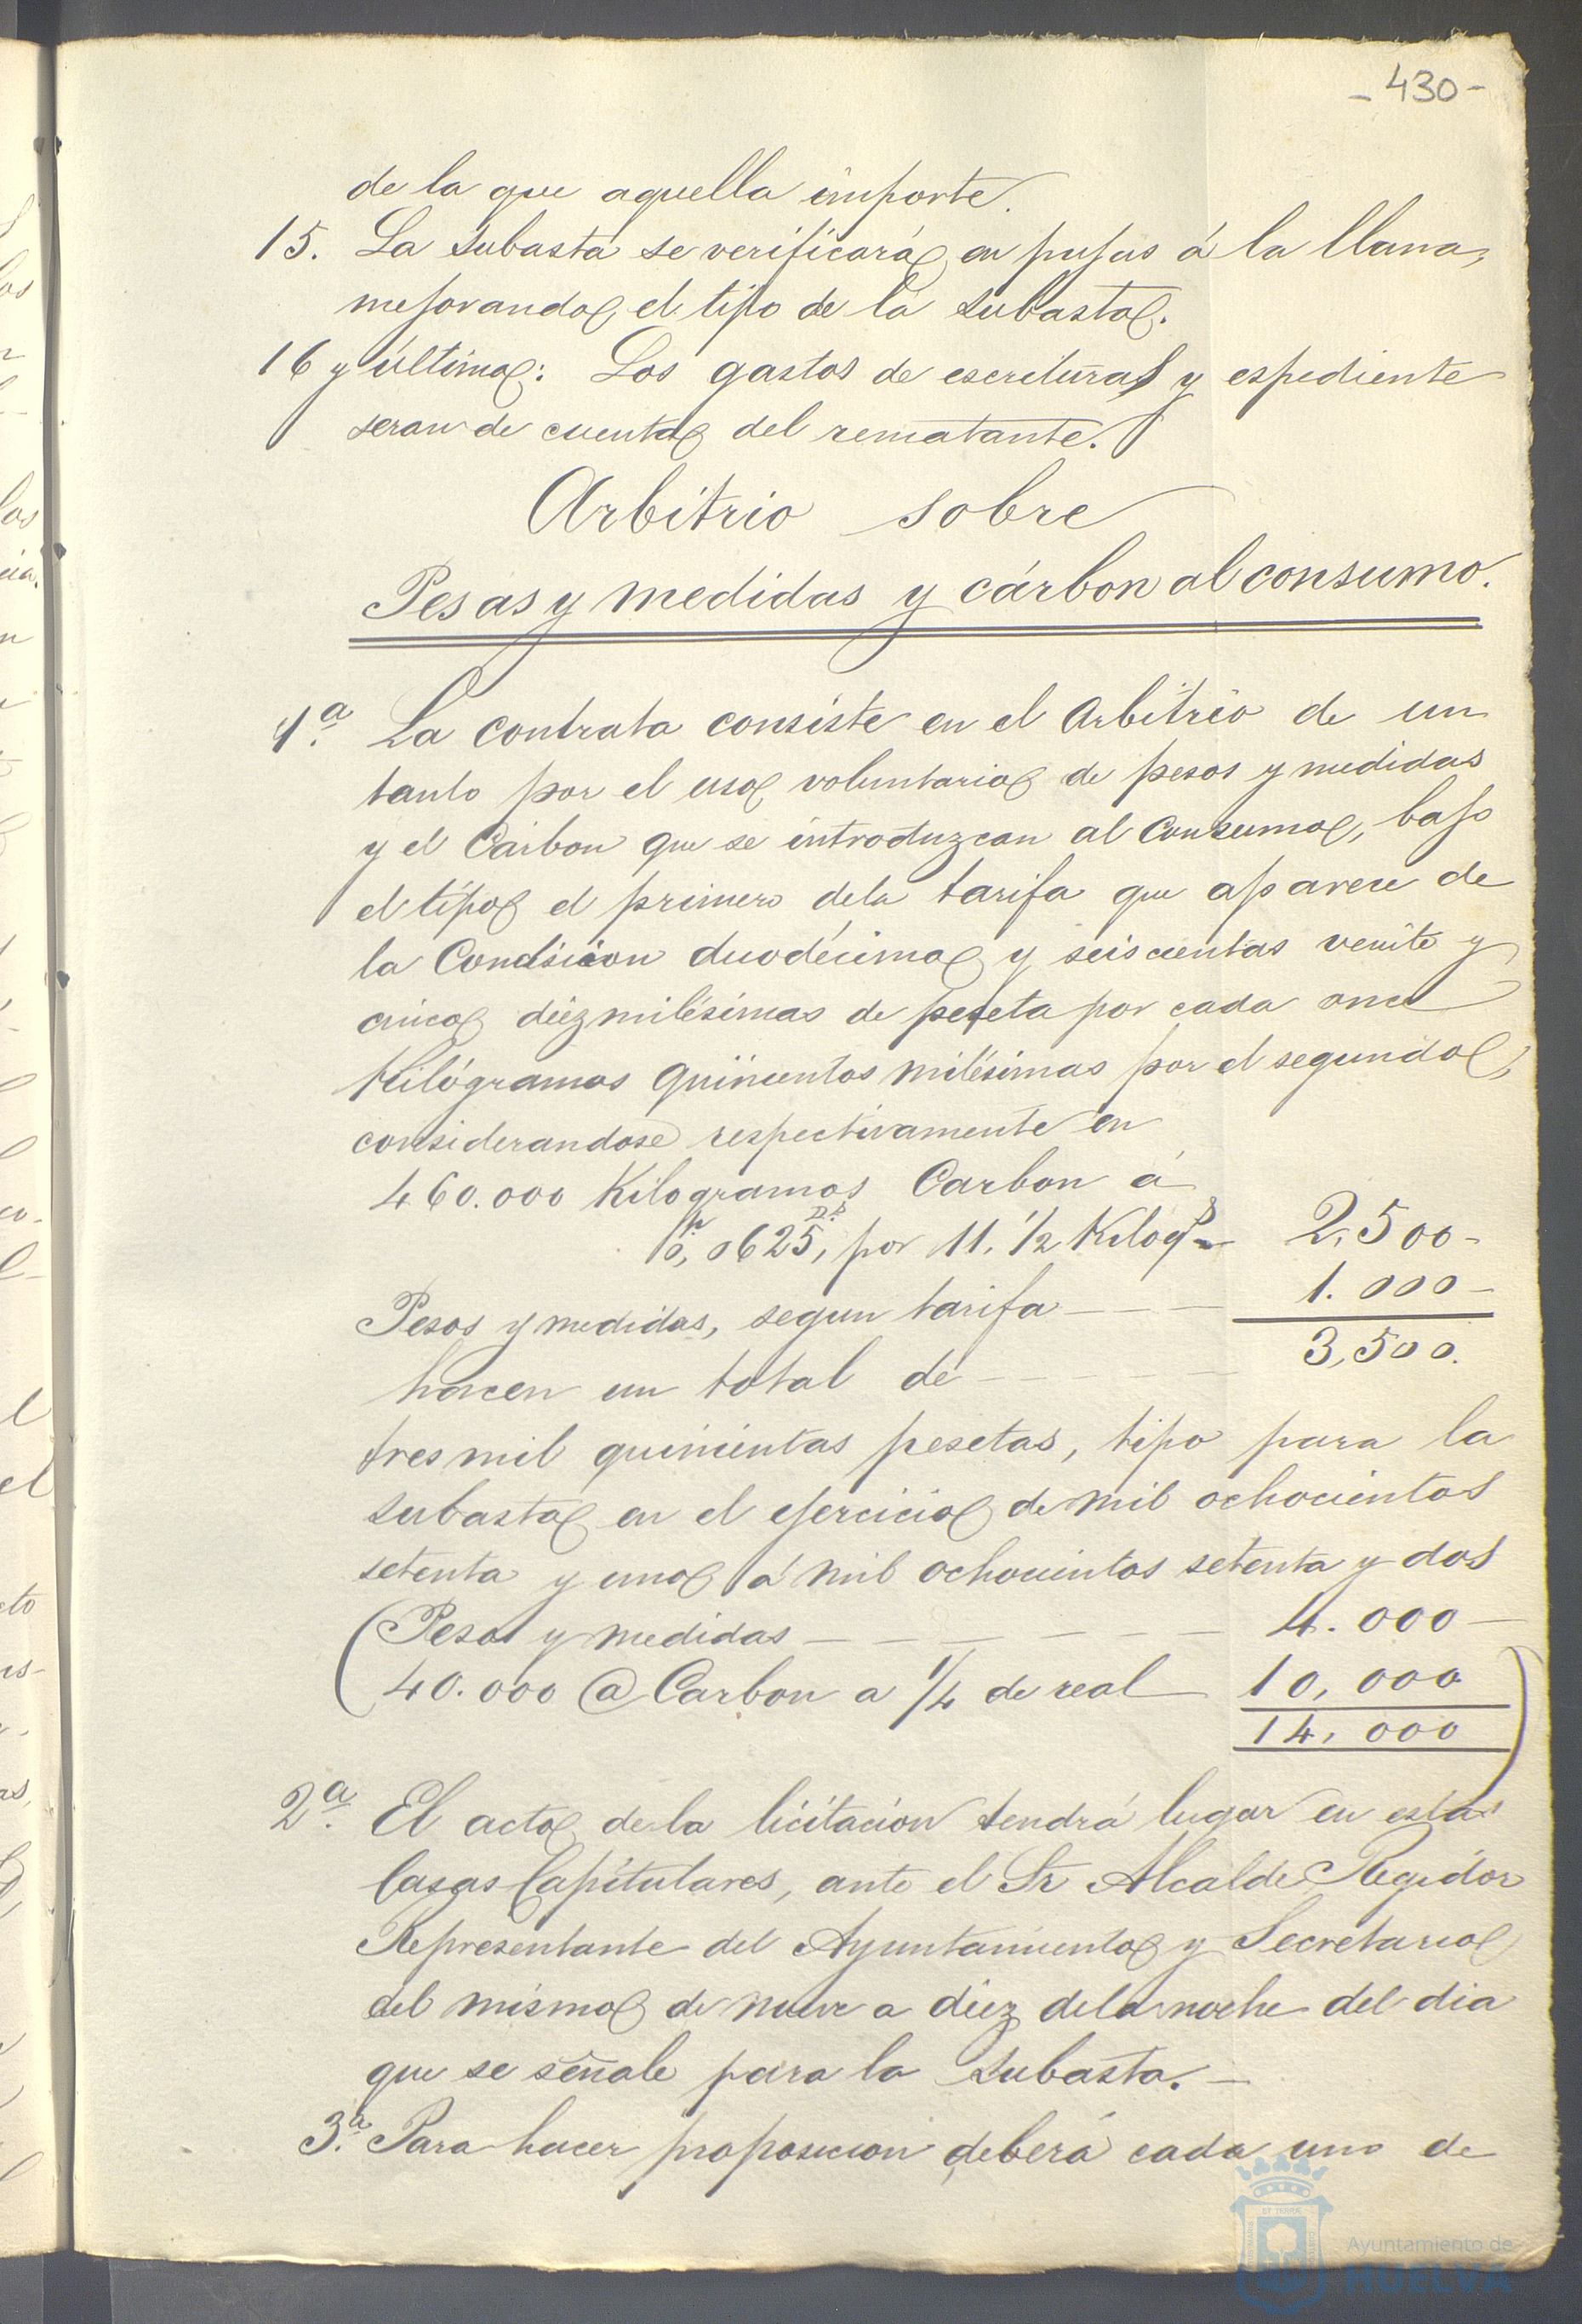 - 430 -
de la que aquella importe.
15. La subasta se verificará en pujas á la llana,
mejorando el tipo de la subasta.
16 y última: Los gastos de escrituras y espediente
seran de cuenta del rematante.
Arbitrio sobre
Pesas y medidas y cárbon al consumo.
1.ª La contrata consiste en el Arbitrio de un
tanto por el uso voluntario de pesos y medidas
y el Carbon que se introduzcan al Consumo, bajo
el tipo el primero de la tarifa que aparece de
la Condicion duodécima y seiscientas veinte y
cinco diezmilésimas de peseta por cada once
Kilógramos quinientos milésimas por el segundo,
considerandose respectivamente en
460.000 Kilogramos Carbon á
0,0625, por 11. 1/2 Kilogs 2,500-
Pesos y medidas, segun tarifa --- 1.000-
hacen un total de ----- 3,500.
tres mil quinientas pesetas, tipo para la
subasta en el ejercicio de mil ochocientos
setenta y uno á mil ochocientos setenta y dos
(Pesos y medidas ------ 4.000-
40.000 @ Carbon a 1/4 de real 10,000
14,000)
2.ª El acto de la licitacion tendrá lugar en estas
Casas Capitulares, ante el Sr Alcalde Regidor
Representante del Ayuntamiento y Secretario
del mismo de nueve a diez de la noche del dia
que se señale para la subasta. -
3.ª Para hacer proposicion deberá cada uno de
Ayuntamiento de
HUELVA